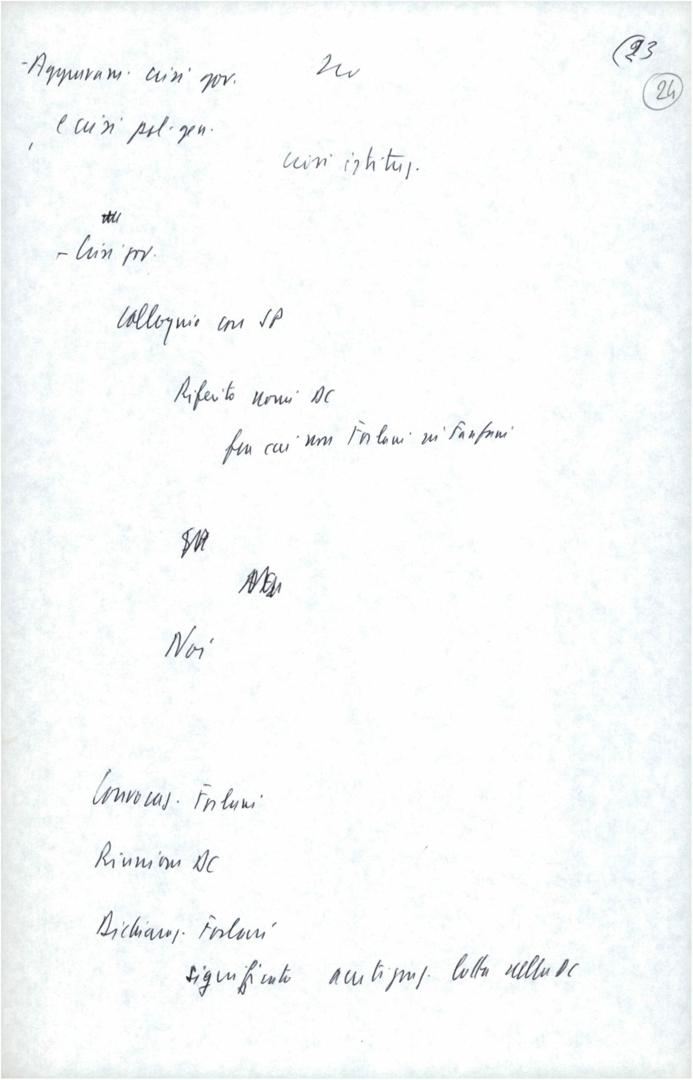 (23
24
- Aggravam. crisi gov.
e crisi pol. gen.
crisi istituz.
- Crisi gov.
Colloquio con SP
Riferito nomi DC
fra cui non Forlani né Fanfani
Noi
Convocaz. Forlani
Riunione DC
Dichiaraz. Forlani
significato acutizzaz. lotta nella DC